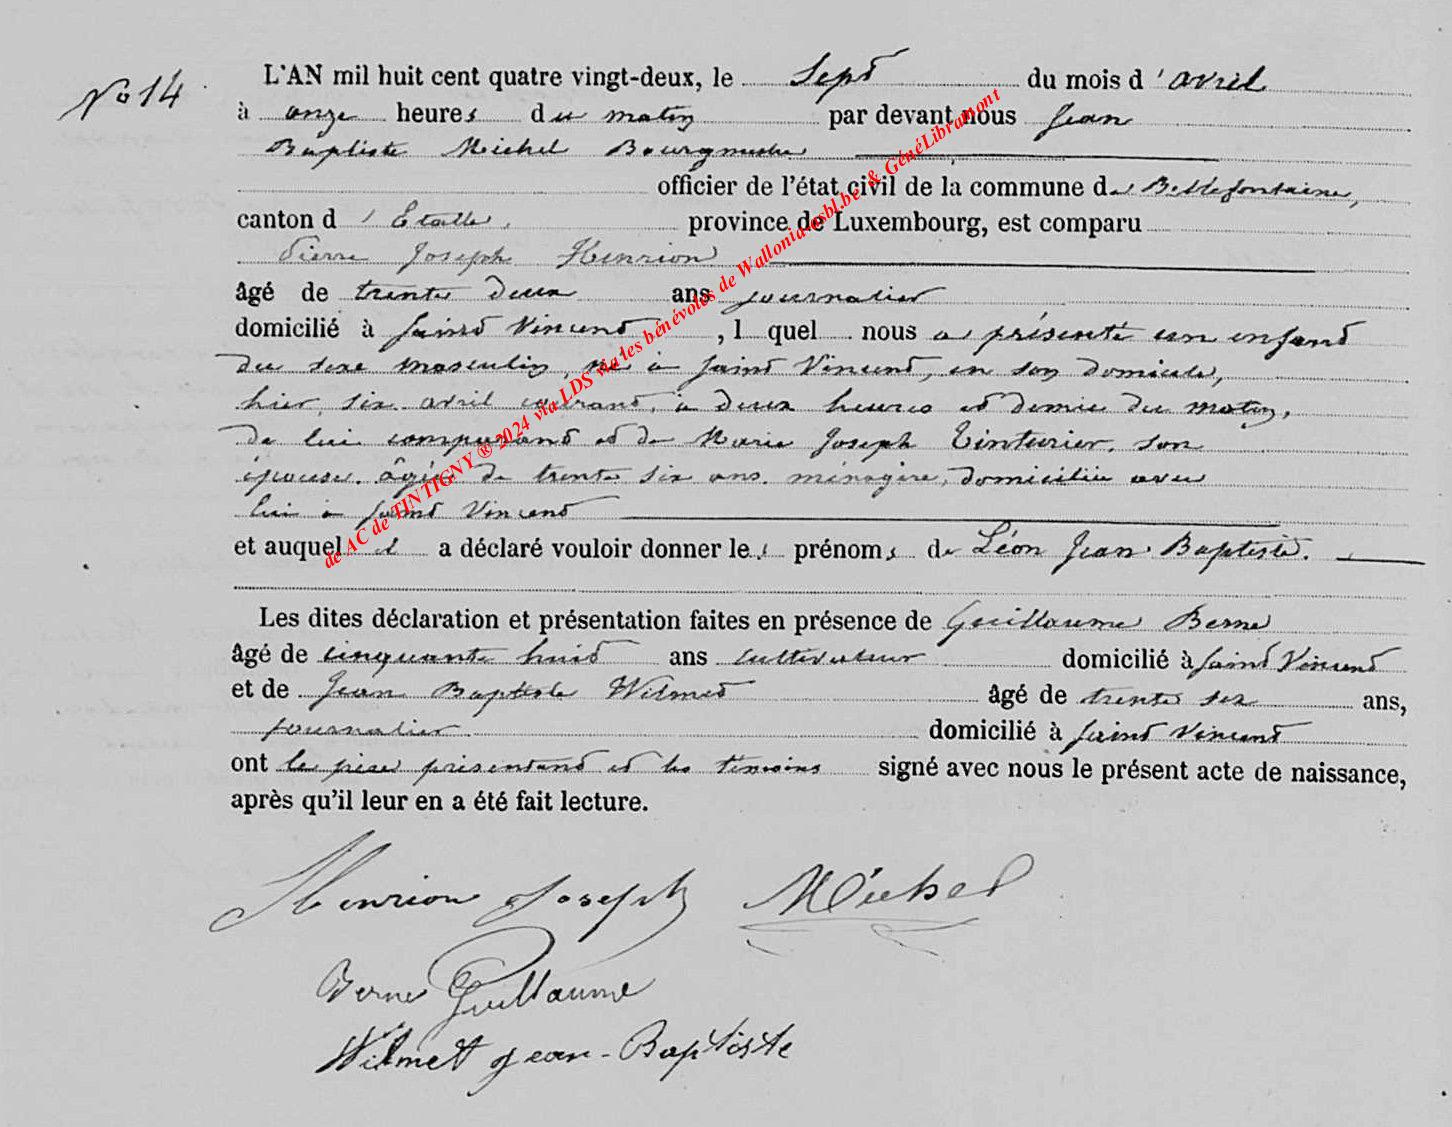 No 14
L'AN mil huit cent quatre vingt-deux, le Sept du mois d'avril
à onze heures du matin par devant nous Jean
Baptiste Michel Bourgmestre
officier de l'état civil de la commune de Bellefontaine,
canton d'Etalle, province de Luxembourg, est comparu
Pierre Joseph Henrion
âgé de trente deux ans journalier
domicilié à Saint Vincent, l quel nous a présenté un enfant
du sexe masculin, né à Saint Vincent, en son domicile,
hier, six avril courant, à deux heures et demie du matin,
de lui comparant et de Marie Joseph Tinturier, son
épouse, âgée de trente six ans, ménagère, domiciliée avec
lui à Saint Vincent
et auquel il a déclaré vouloir donner les prénoms de Léon Jean Baptiste.
Les dites déclaration et présentation faites en présence de Guillaume Berne
âgé de cinquante huit ans cultivateur domicilié à Saint Vincent
et de Jean Baptiste Wilmet âgé de trente six ans,
journalier domicilié à Saint Vincent
ont le père présentant et les témoins signé avec nous le présent acte de naissance,
après qu'il leur en a été fait lecture.
Henrion Joseph Michel
Berne Guillaume
Wilmet Jean-Baptiste
de AC de TINTIGNY ® 2024 via LDS via les bénévoles de Wallonia-asbl.be & GénéLibramont